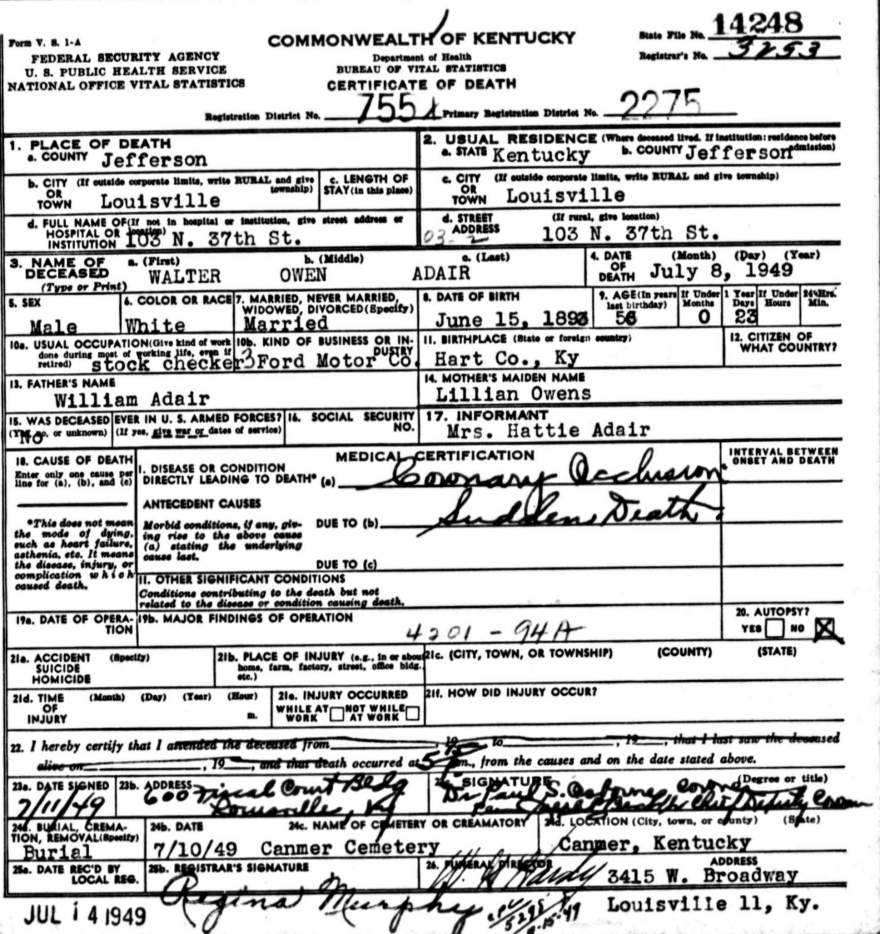 Form V. S. 1-A
FEDERAL SECURITY AGENCY
U. S. PUBLIC HEALTH SERVICE
NATIONAL OFFICE VITAL STATISTICS
COMMONWEALTH OF KENTUCKY
Department of Health
BUREAU OF VITAL STATISTICS
CERTIFICATE OF DEATH
State File No. 14248
Registrar's No. 3253
Registration District No. 755 Primary Registration District No. 2275
1. PLACE OF DEATH
a. COUNTY Jefferson
2. USUAL RESIDENCE (Where deceased lived. If institution: residence before admission)
a. STATE Kentucky b. COUNTY Jefferson
b. CITY (If outside corporate limits, write RURAL and give township)
OR
TOWN Louisville
c. LENGTH OF STAY (in this place)
c. CITY (If outside corporate limits, write RURAL and give township)
OR
TOWN Louisville
d. FULL NAME OF (If not in hospital or institution, give street address or location)
HOSPITAL OR
INSTITUTION 103 N. 37th St.
d. STREET (If rural, give location)
ADDRESS 103 N. 37th St.
03-2
3. NAME OF DECEASED
(Type or Print)
a. (First) b. (Middle) c. (Last)
WALTER OWEN ADAIR
4. DATE OF DEATH (Month) (Day) (Year)
July 8, 1949
5. SEX
Male
6. COLOR OR RACE
White
7. MARRIED, NEVER MARRIED, WIDOWED, DIVORCED (Specify)
Married
8. DATE OF BIRTH
June 15, 1893
9. AGE (In years last birthday)
56
If Under 1 Year
Months Days
0 23
If Under 24 Hrs.
Hours Min.
10a. USUAL OCCUPATION (Give kind of work done during most of working life, even if retired)
stock checker
10b. KIND OF BUSINESS OR INDUSTRY
3 Ford Motor Co.
11. BIRTHPLACE (State or foreign country)
Hart Co., Ky
12. CITIZEN OF WHAT COUNTRY?
13. FATHER'S NAME
William Adair
14. MOTHER'S MAIDEN NAME
Lillian Owens
15. WAS DECEASED EVER IN U. S. ARMED FORCES?
(Yes, no, or unknown) (If yes, give war or dates of service)
No
16. SOCIAL SECURITY NO.
17. INFORMANT
Mrs. Hattie Adair
18. CAUSE OF DEATH
Enter only one cause per line for (a), (b), and (c)
*This does not mean the mode of dying, such as heart failure, asthenia, etc. It means the disease, injury, or complication which caused death.
MEDICAL CERTIFICATION
INTERVAL BETWEEN ONSET AND DEATH
I. DISEASE OR CONDITION
DIRECTLY LEADING TO DEATH* (a) Coronary Occlusion
ANTECEDENT CAUSES
Sudden Death
Morbid conditions, if any, giving rise to the above cause (a) stating the underlying cause last.
DUE TO (b)
DUE TO (c)
II. OTHER SIGNIFICANT CONDITIONS
Conditions contributing to the death but not related to the disease or condition causing death.
19a. DATE OF OPERATION
19b. MAJOR FINDINGS OF OPERATION
4201 - 94A
20. AUTOPSY?
YES NO X
21a. ACCIDENT (Specify)
SUICIDE
HOMICIDE
21b. PLACE OF INJURY (e.g., in or about home, farm, factory, street, office bldg. etc.)
21c. (CITY, TOWN, OR TOWNSHIP) (COUNTY) (STATE)
21d. TIME OF INJURY (Month) (Day) (Year) (Hour) m.
21e. INJURY OCCURRED
WHILE AT WORK NOT WHILE AT WORK
21f. HOW DID INJURY OCCUR?
22. I hereby certify that I attended the deceased from , 19 to , 19 , that I last saw the deceased
alive on , 19 , and that death occurred at m., from the causes and on the date stated above.
23a. DATE SIGNED
7/11/49
23b. ADDRESS
600 Fiscal Court Bldg
Louisville, Ky
SIGNATURE (Degree or title)
Dr Paul S. Osborne, Coroner
Chief Deputy Coroner
24a. BURIAL, CREMATION, REMOVAL (Specify)
Burial
24b. DATE
7/10/49
24c. NAME OF CEMETERY OR CREMATORY
Canmer Cemetery
24d. LOCATION (City, town, or county) (State)
Canmer, Kentucky
25a. DATE REC'D BY LOCAL REG.
JUL 14 1949
25b. REGISTRAR'S SIGNATURE
Regina Murphy
26. FUNERAL DIRECTOR
Hardy
ADDRESS
3415 W. Broadway
Louisville 11, Ky.